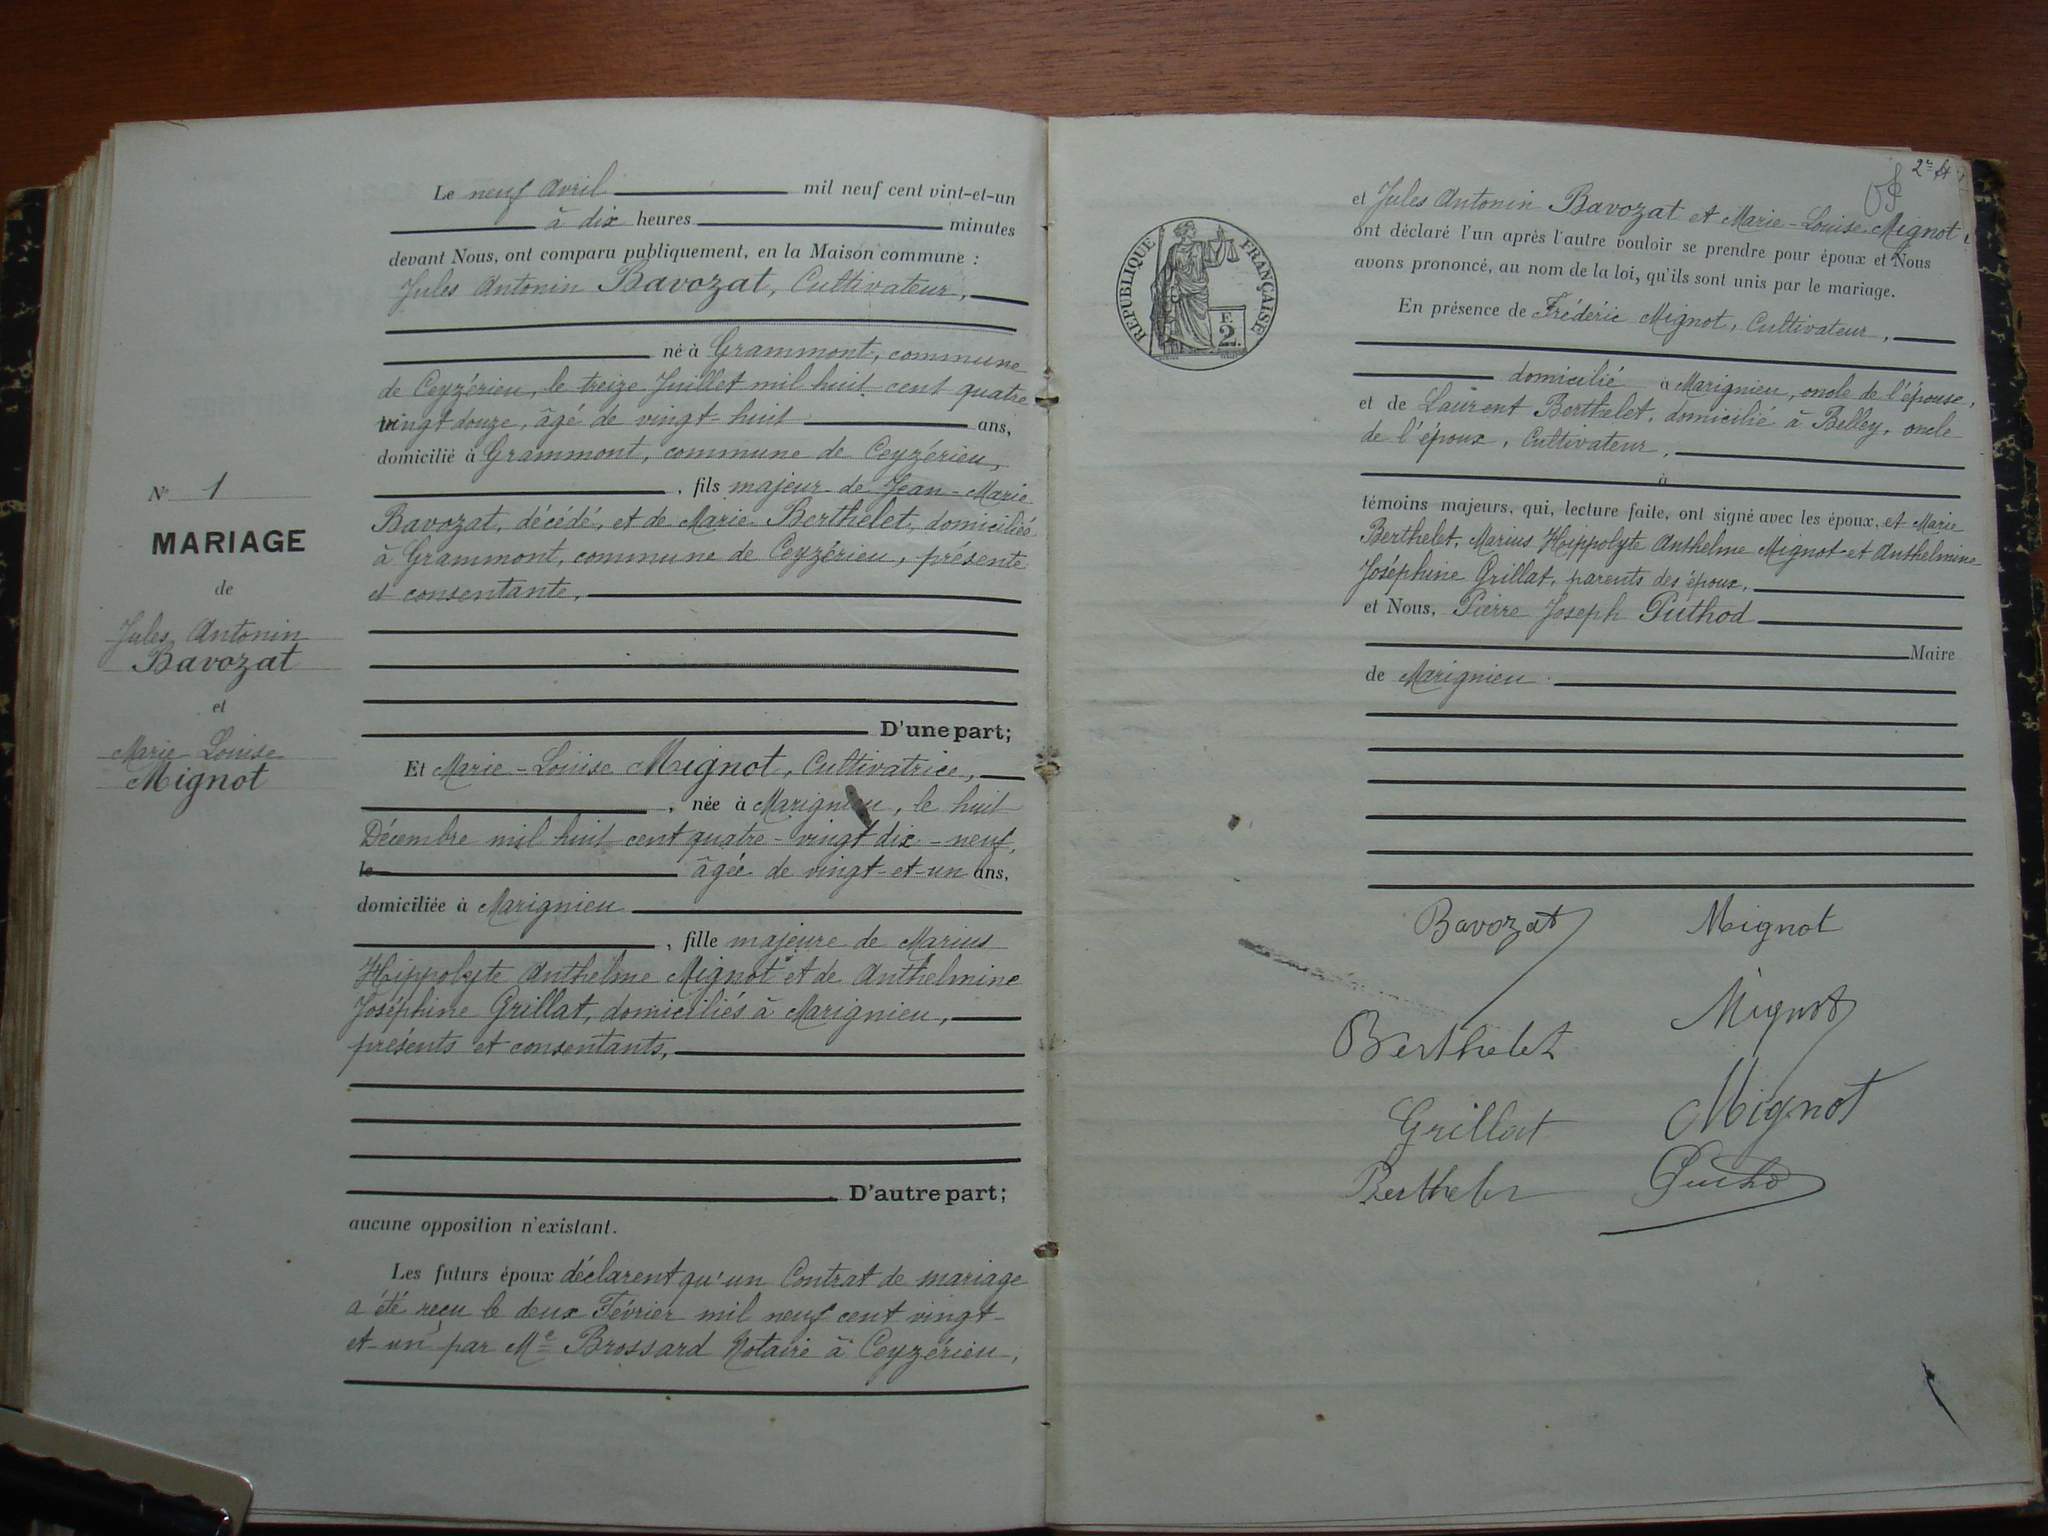 Le neuf Avril mil neuf cent vint-et-un
à dix heures minutes
devant Nous, ont comparu publiquement, en la Maison commune :
Jules Antonin Bavozat, Cultivateur,
né à Grammont, commune
de Ceyzérieu, le treize Juillet mil huit cent quatre
vingt douze, âgé de vingt-huit ans,
domicilié à Grammont, commune de Ceyzérieu,
, fils majeur de Jean-Marie
Bavozat, décédé, et de Marie Berthelet, domiciliée
à Grammont, commune de Ceyzérieu, présente
et consentante,
D'une part;
Et Marie-Louise Mignot, Cultivatrice,
, née à Marignieu, le huit
Décembre mil huit cent quatre-vingt dix-neuf,
le âgée de vingt-et-un ans,
domiciliée à Marignieu
, fille majeure de Marius
Hippolyte Anthelme Mignot et de Anthelmine
Joséphine Grillat, domiciliés à Marignieu,
présents et consentants,
D'autre part;
aucune opposition n'existant.
Les futurs époux déclarent qu'un Contrat de mariage
a été reçu le deux Février mil neuf cent vingt-
et-un par Me Brossard Notaire à Ceyzérieu,
N° 1
MARIAGE
de
Jules Antonin
Bavozat
et
Marie Louise
Mignot
2e
RÉPUBLIQUE FRANÇAISE
F.
2.
et Jules Antonin Bavozat et Marie-Louise Mignot
ont déclaré l'un après l'autre vouloir se prendre pour époux et Nous
avons prononcé, au nom de la loi, qu'ils sont unis par le mariage.
En présence de Frédéric Mignot, Cultivateur,
domicilié à Marignieu, oncle de l'épouse,
et de Laurent Berthelet, domicilié à Belley, oncle
de l'époux, Cultivateur,
à
témoins majeurs, qui, lecture faite, ont signé avec les époux, et Marie
Berthelet, Marius Hippolyte Anthelme Mignot et Anthelmine
Joséphine Grillat, parents des époux,
et Nous, Pierre Joseph Puthod
Maire
de Marignieu.
Bavozat Mignot
Mignot
Berthelet
Mignot
Grillat
Berthelet Puthod